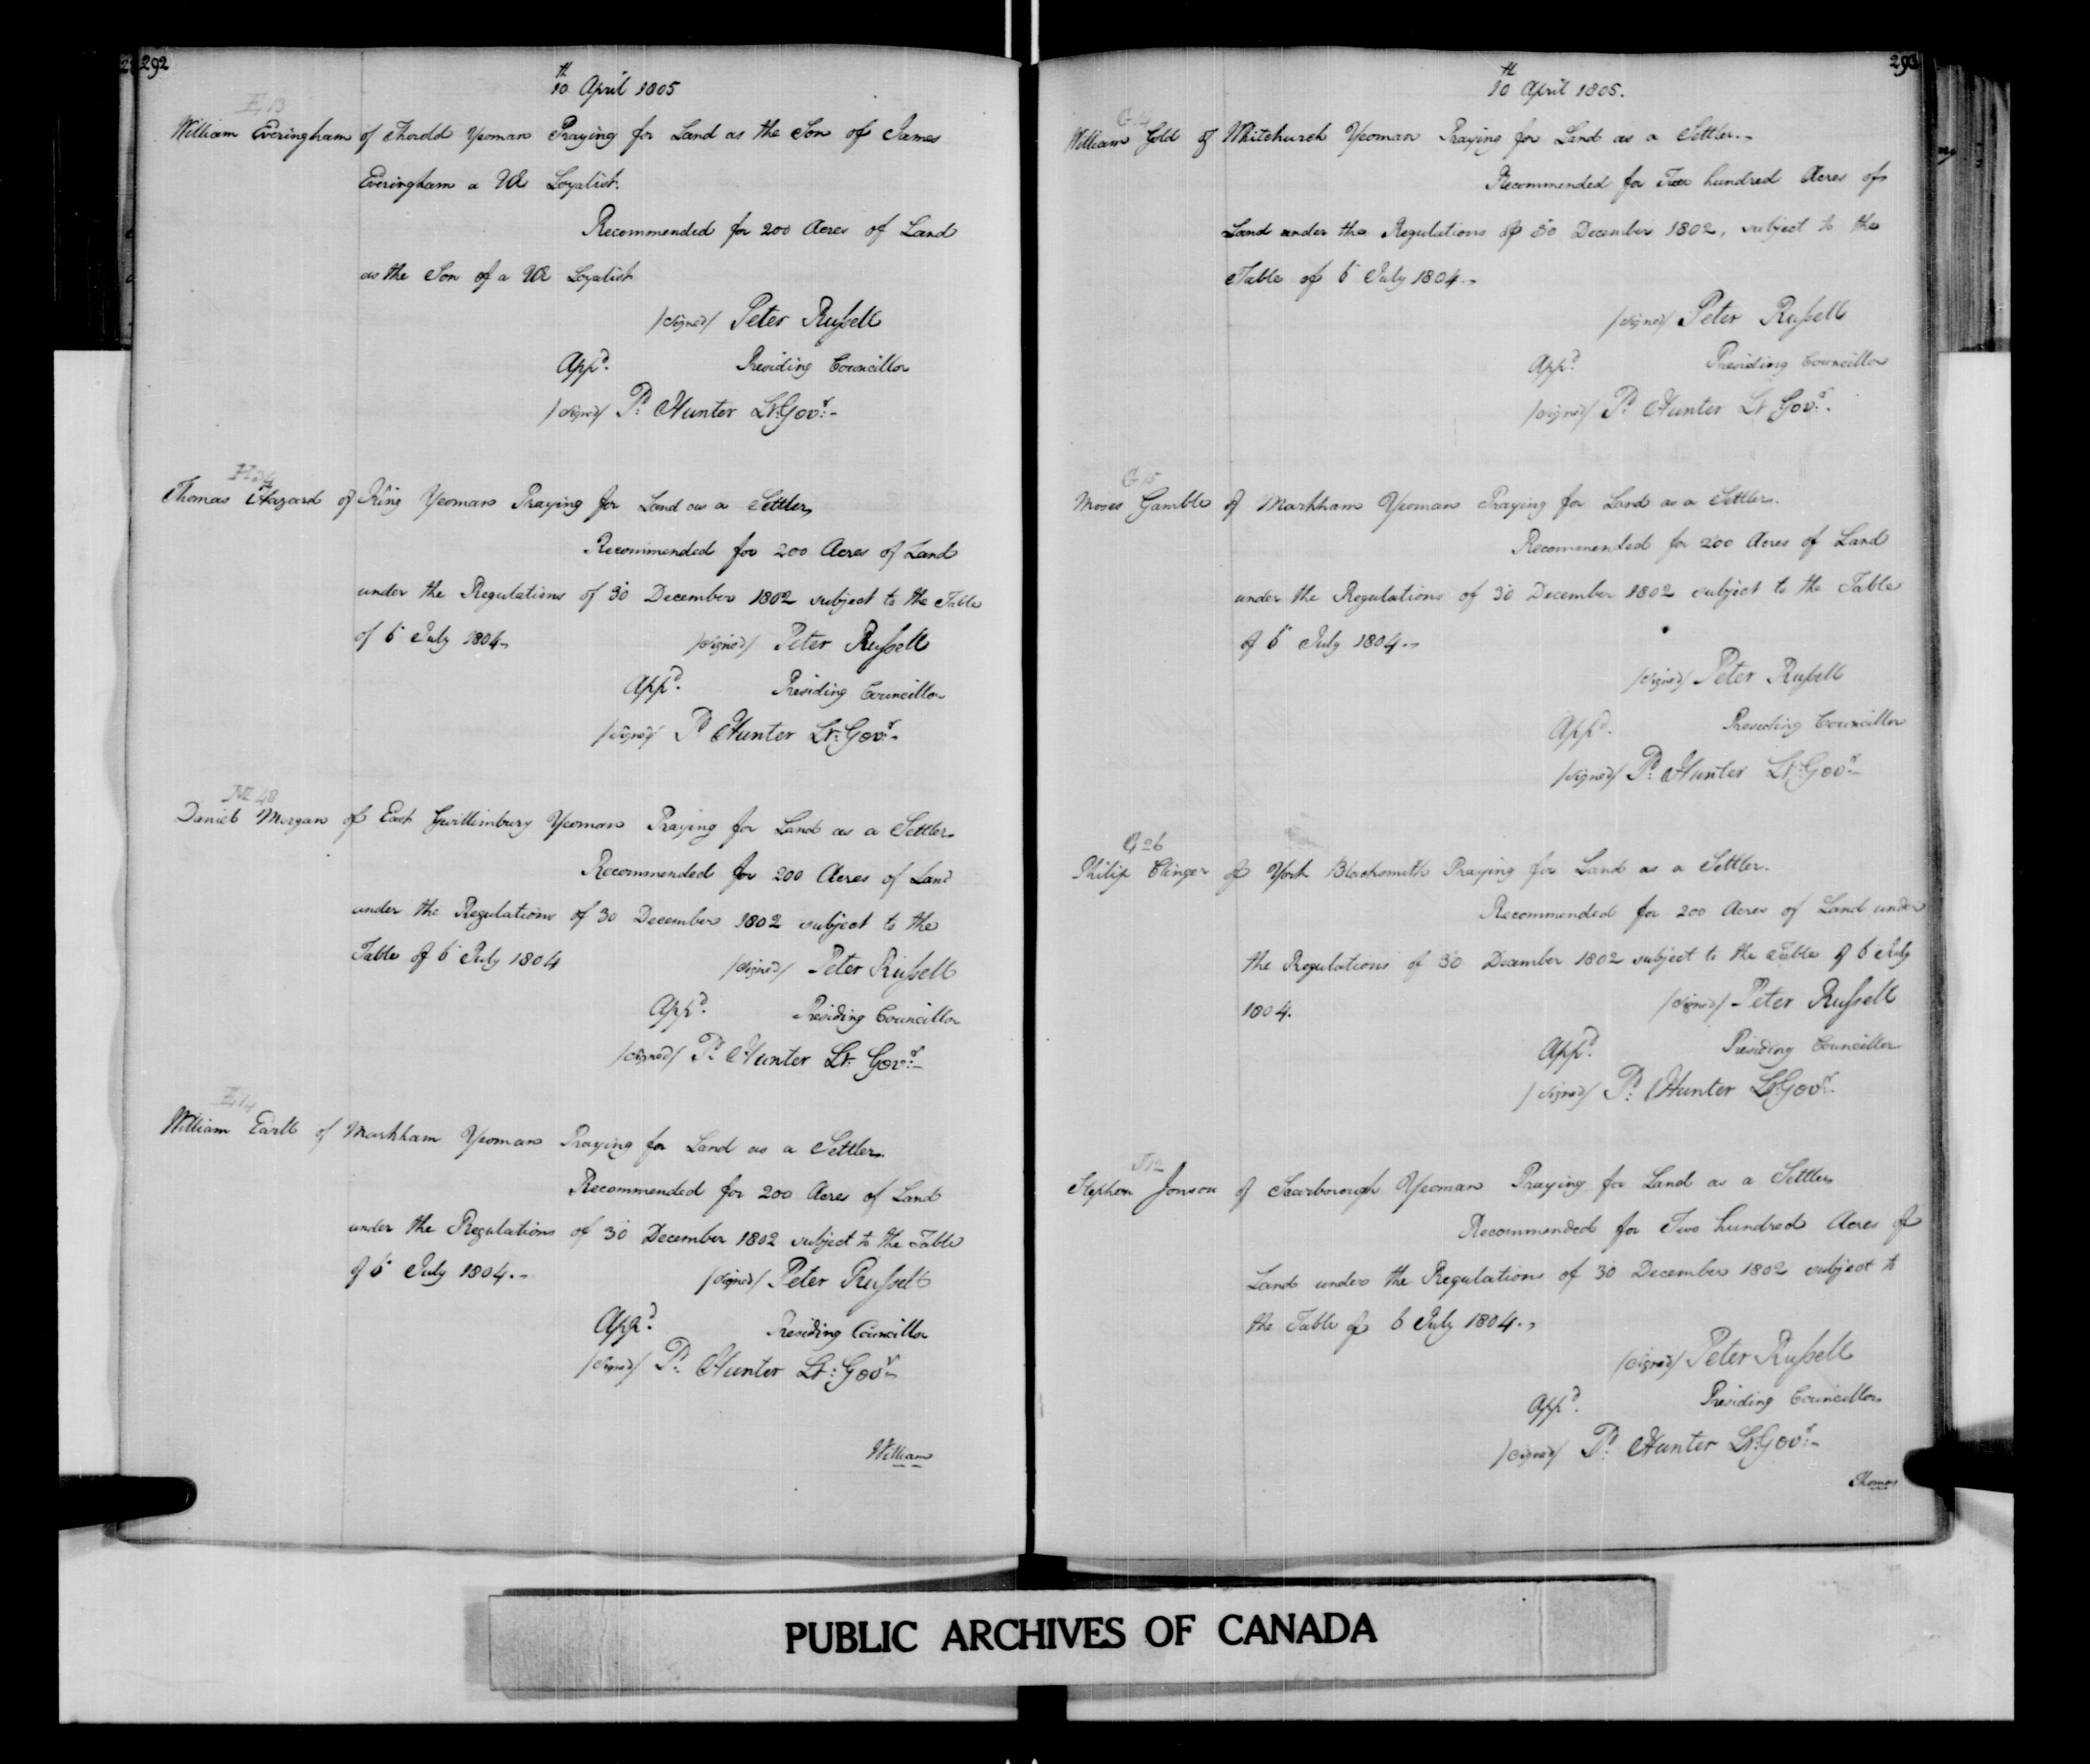 292
10th April 1805
E 13
William Everingham of Thorold Yeoman Praying for Land as the Son of James
Everingham a UE Loyalist.
Recommended for 200 Acres of Land
as the Son of a UE Loyalist
/signed/ Peter Russell
Appd. Presiding Councillor
/signed/ Pr. Hunter Lt. Govr.
H 34
Thomas Hazard of King Yeoman Praying for Land as a Settler
Recommended for 200 Acres of Land
under the Regulations of 30 December 1802 subject to the Table
of 6 July 1804
/signed/ Peter Russell
Appd. Presiding Councillor
/signed/ Pr Hunter Lt. Govr.
M 48
Daniel Morgan of East Gwillimbury Yeoman Praying for Land as a Settler
Recommended for 200 Acres of Land
under the Regulations of 30 December 1802 subject to the
Table of 6 July 1804
/signed/ Peter Russell
Appd. Presiding Councillor
/signed/ Pr. Hunter Lt. Govr.
E 14
William Earll of Markham Yeoman Praying for Land as a Settler
Recommended for 200 Acres of Land
under the Regulations of 30 December 1802 subject to the Table
of 6 July 1804.
/signed/ Peter Russell
Appd. Presiding Councillor
/signed/ Pr. Hunter Lt. Govr.
William
293
10th April 1805.
G 14
William Gold of Whitchurch Yeoman Praying for Land as a Settler.
Recommended for Two hundred Acres of
Land under the Regulations of 30 December 1802, subject to the
Table of 6 July 1804.
/signed/ Peter Russell
Appd. Presiding Councillor
/signed/ Pr. Hunter Lt Govr.
G 15
Moses Gamble of Markham Yeoman Praying for Land as a Settler.
Recommended for 200 Acres of Land
under the Regulations of 30 December 1802 subject to the Table
of 6 July 1804.
/signed/ Peter Russell
Appd. Presiding Councillor
/signed/ Pr. Hunter Lt. Govr.
C 26
Philip Clinger of York Blacksmith Praying for Land as a Settler.
Recommended for 200 Acres of Land under
the Regulations of 30 December 1802 subject to the Table of 6 July
1804.
/signed/ Peter Russell
Appd. Presiding Councillor
/signed/ Pr. Hunter Lt. Govr.
J 12
Stephen Jonson of Scarborough Yeoman Praying for Land as a Settler
Recommended for Two hundred Acres of
Land under the Regulations of 30 December 1802 subject to
the Table of 6 July 1804.
/signed/ Peter Russell
Appd. Presiding Councillor
/signed/ Pr. Hunter Lt. Govr.
Thomas
PUBLIC ARCHIVES OF CANADA